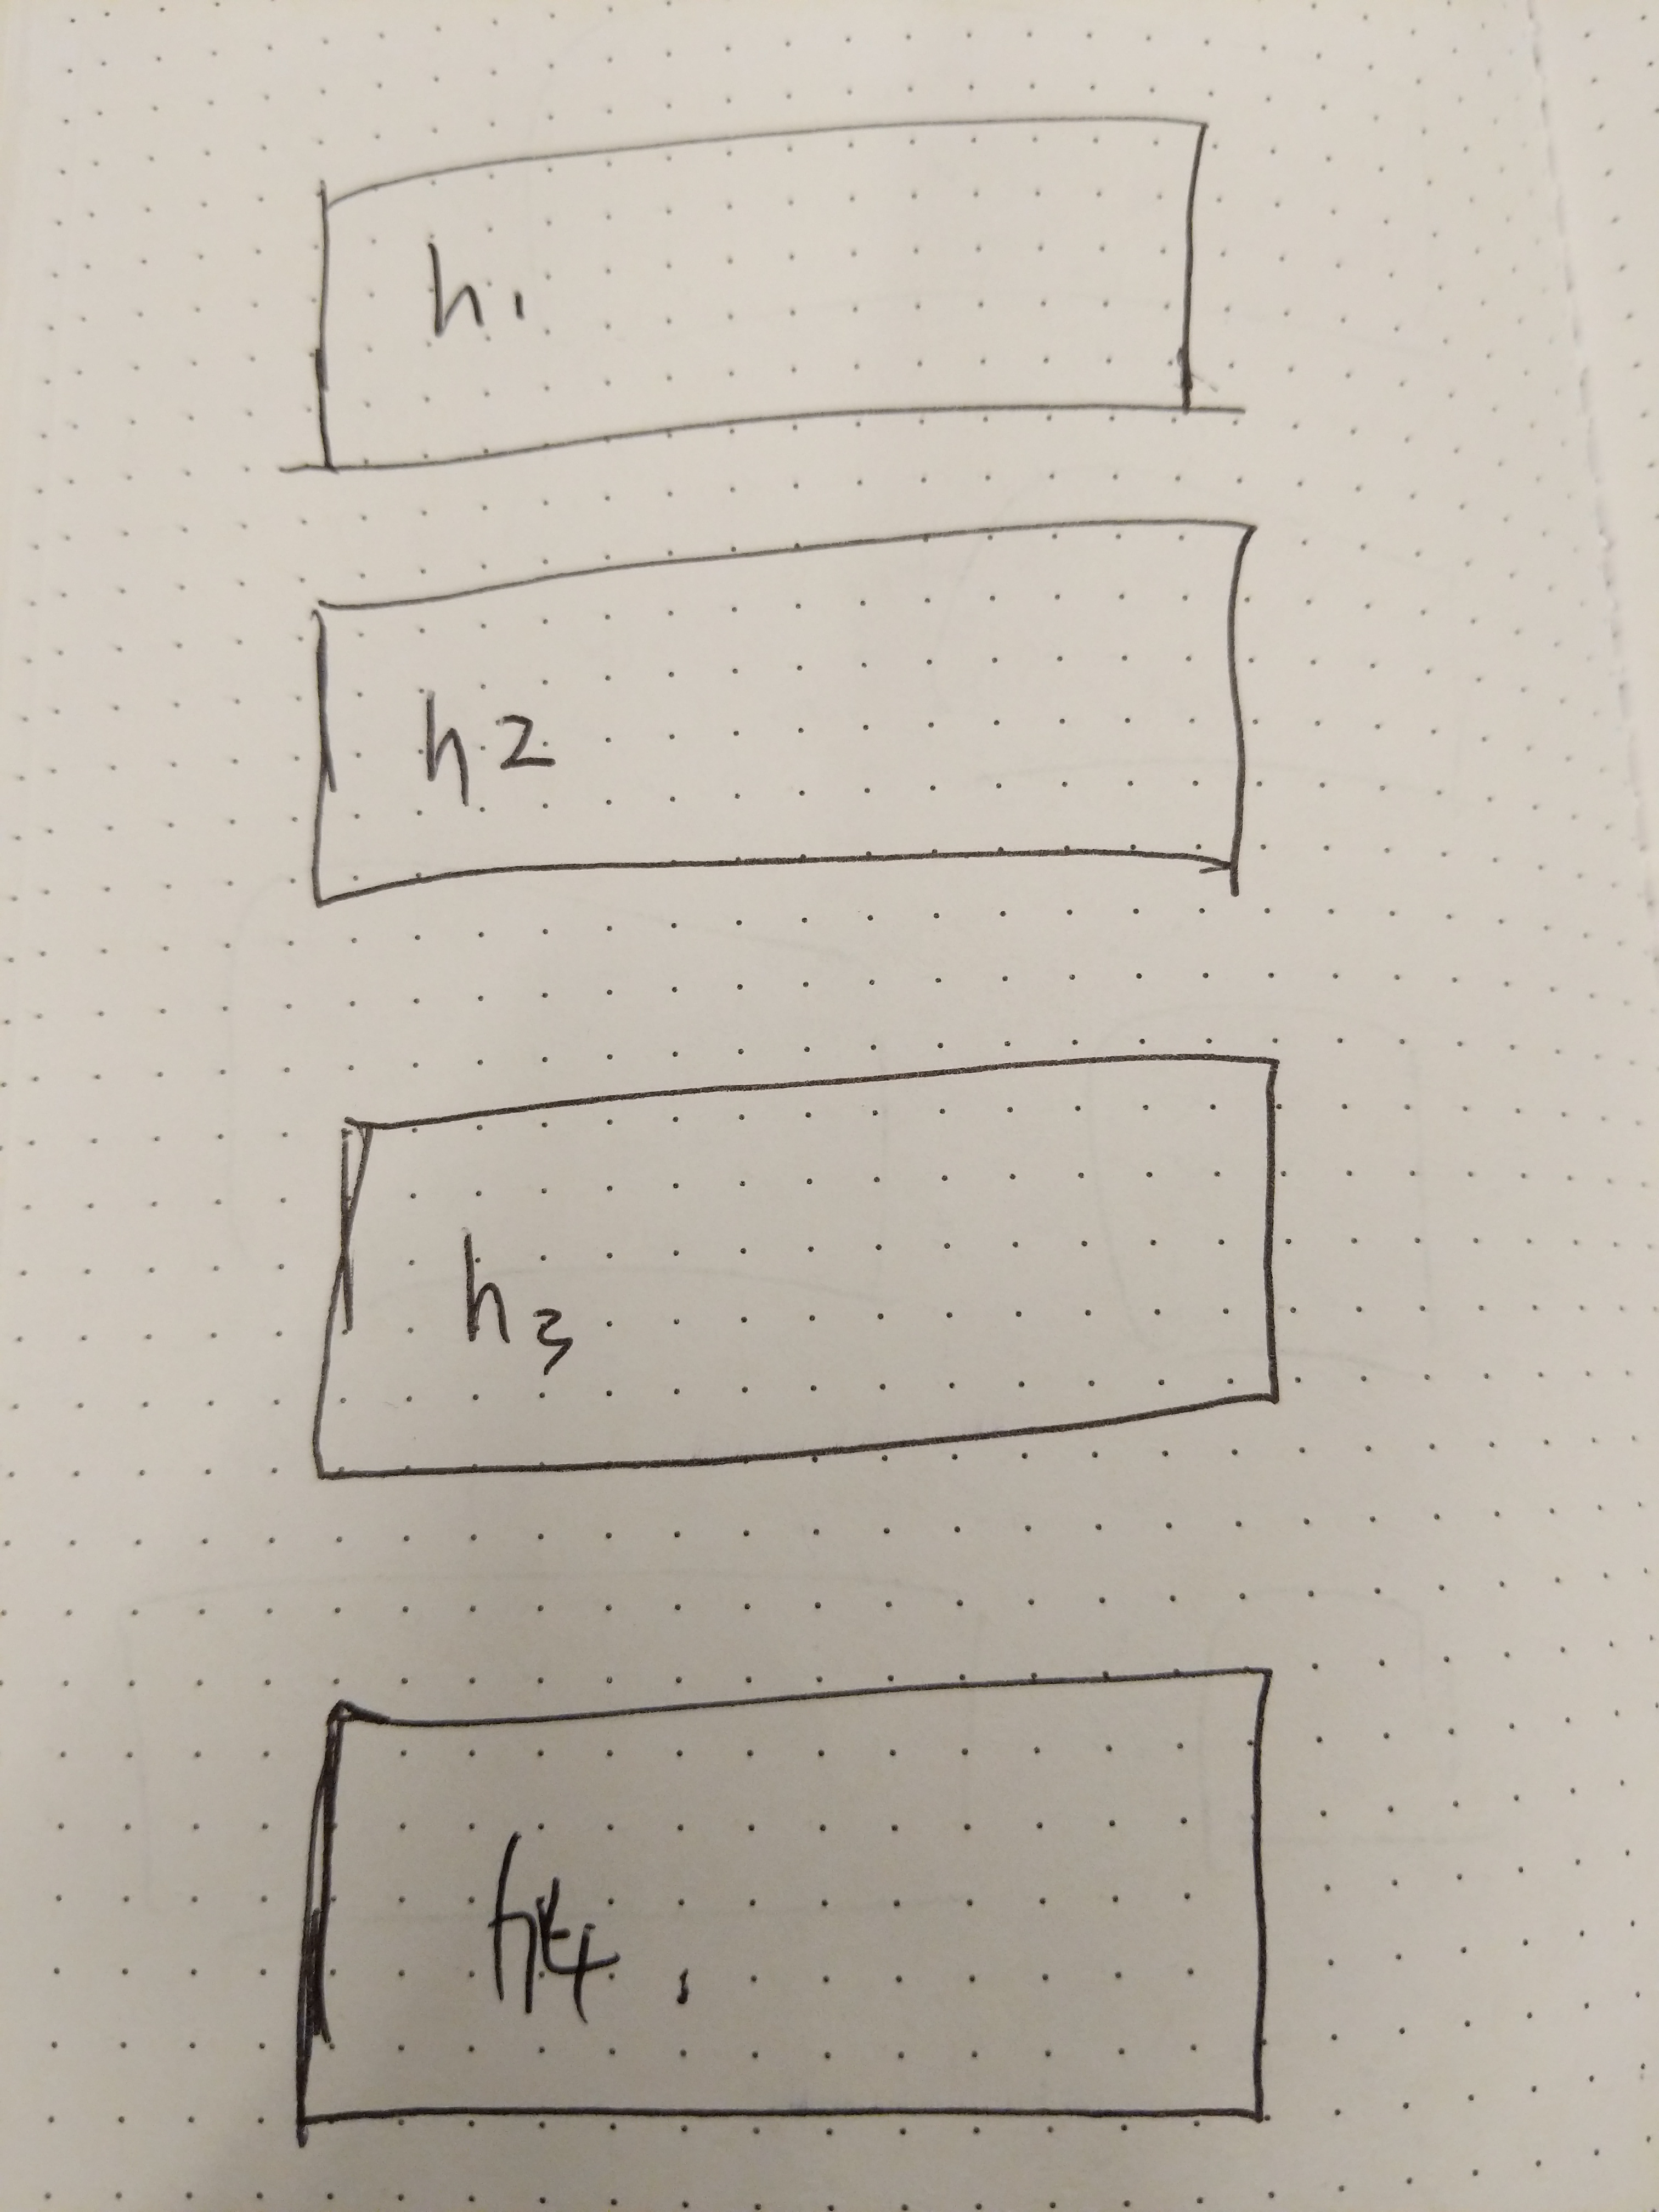 h1
h2
h3
h4